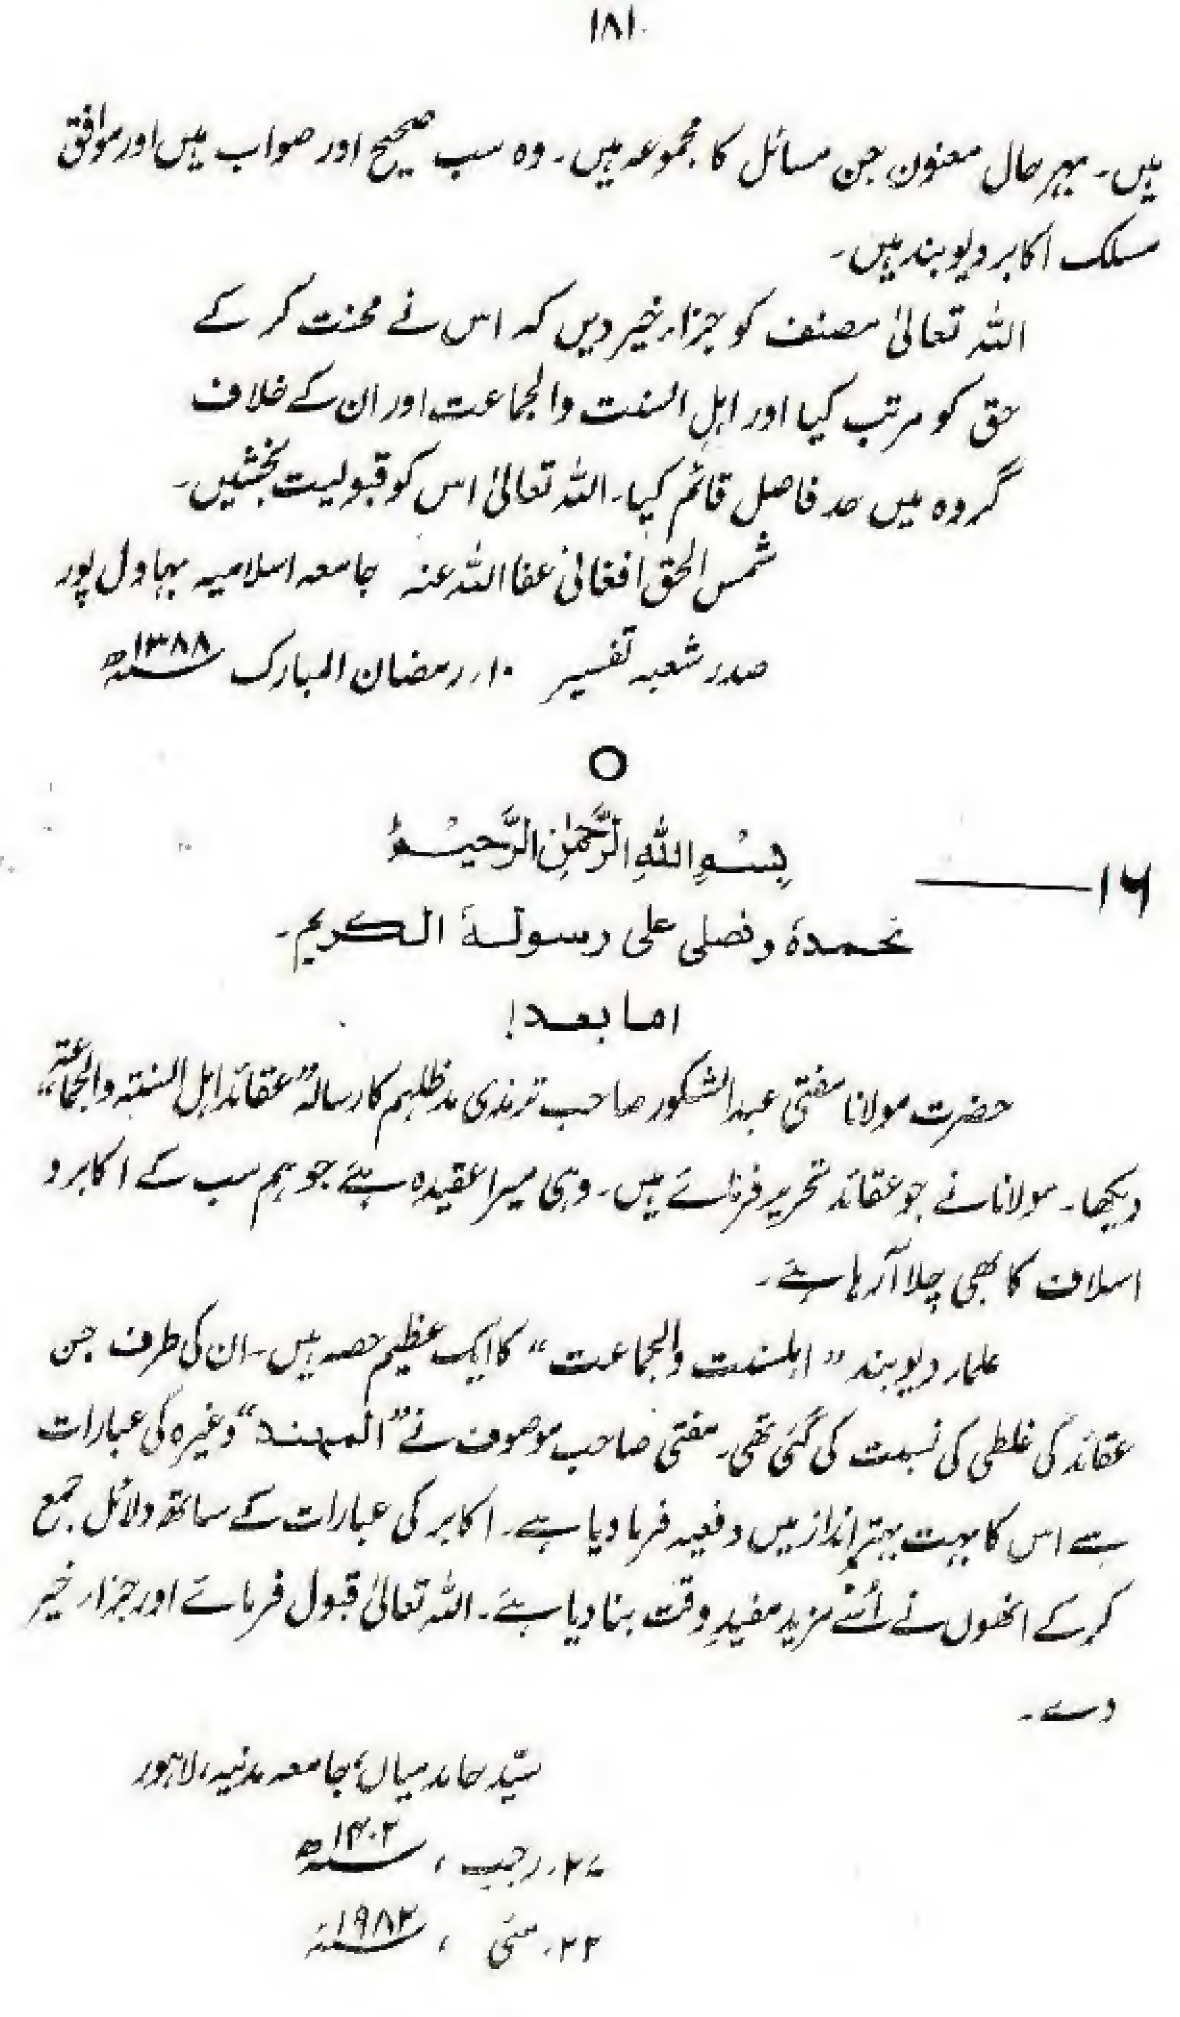 ۱۸۱
ہیں۔ بہر حال معنون جن مسائل کا مجموعہ ہیں۔ وہ سب صحیح اور صواب ہیں اور موافق
مسلک اکابر دیوبند ہیں۔
اللہ تعالیٰ مصنف کو جزاء خیر دیں کہ اس نے محنت کر کے
حق کو مرتب کیا اور اہل السنت والجماعت اور ان کے خلاف
گروہ میں حد فاصل قائم کیا۔ اللہ تعالیٰ اس کو قبولیت بخشیں۔
شمس الحق افغانی عفا اللہ عنہ جامعہ اسلامیہ بہاول پور
صدر شعبہ تفسیر ۱۰ رمضان المبارک ۱۳۸۸ھ
بِسْمِ اللهِ الرَّحْمٰنِ الرَّحِيْمُ
۱۶
نحمدہٗ ونصلی علی رسولہٗ الکریم۔
اما بعد!
حضرت مولانا مفتی عبدالشکور صاحب ترمذی مدظلہم کا رسالہ "عقائد اہل السنتہ والجماعتہ"
دیکھا۔ مولانا نے جو عقائد تحریر فرمائے ہیں۔ وہی میرا عقیدہ ہے جو ہم سب کے اکابر و
اسلاف کا بھی چلا آرہا ہے۔
علماء دیوبند "اہلسنت والجماعت" کا ایک عظیم حصہ ہیں۔ ان کی طرف جن
عقائد کی غلطی کی نسبت کی گئی تھی۔ مفتی صاحب موصوف نے "المہند" وغیرہ کی عبارات
سے اس کا بہت بہتر انداز میں دفعیہ فرما دیا ہے۔ اکابر کی عبارات کے ساتھ دلائل جمع
کر کے انھوں نے اُسے مزید مفیدِ وقت بنا دیا ہے۔ اللہ تعالیٰ قبول فرمائے اور جزاء خیر
دے۔
سیّد حامد میاں، جامعہ مدنیہ، لاہور
۲۷۔ رجب، ۱۴۰۲ھ
۲۲۔ مئی، ۱۹۸۲ء